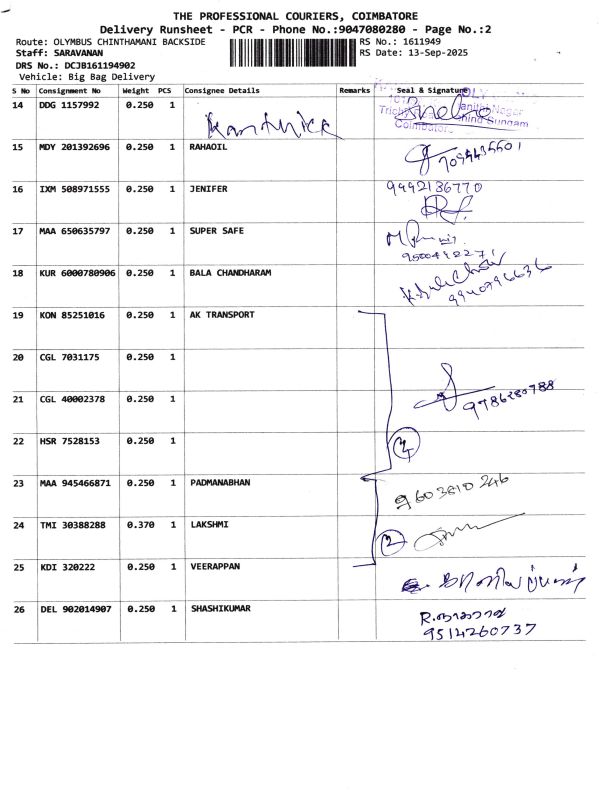 THE PROFESSIONAL COURIERS, COIMBATORE
Delivery Runsheet - PCR - Phone No.:9047080280 - Page No.:2
Route: OLYMBUS CHINTHAMANI BACKSIDE RS No.: 1611949
Staff: SARAVANAN RS Date: 13-Sep-2025
DRS No.: DCJB161194902
Vehicle: Big Bag Delivery
S No Consignment No Weight PCS Consignee Details Remarks Seal & Signature
14 DDG 1157992 0.250 1
Coimbatore
15 MDY 201392696 0.250 1 RAHAOIL
16 IXM 508971555 0.250 1 JENIFER 9442136770
17 MAA 650635797 0.250 1 SUPER SAFE
18 KUR 6000780906 0.250 1 BALA CHANDHARAM
9940796636
19 KON 85251016 0.250 1 AK TRANSPORT
20 CGL 7031175 0.250 1
21 CGL 40002378 0.250 1 9786280788
22 HSR 7528153 0.250 1
23 MAA 945466871 0.250 1 PADMANABHAN 9603810246
24 TMI 30388288 0.370 1 LAKSHMI 2
25 KDI 320222 0.250 1 VEERAPPAN
26 DEL 902014907 0.250 1 SHASHIKUMAR
9514260737